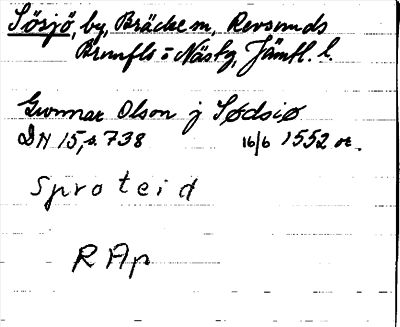 Sörsjö, by, Bräcke sn, Revsunds
Brunflo o Näskg, Jämtl. l.
Gunnar Olson j Sødsiø
DN 15, s. 738 16/6 1552 or.
Sproteid
RAp